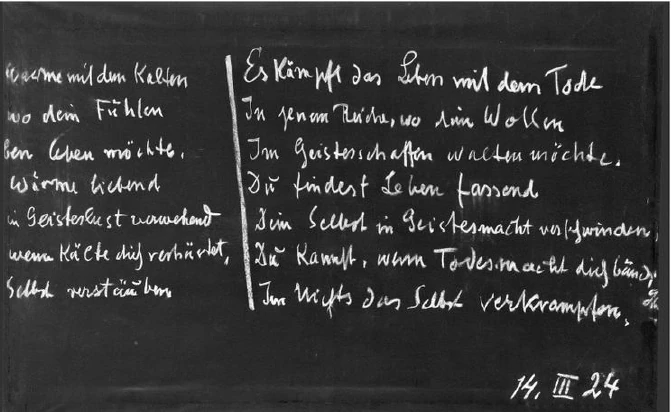 wärme mit dem Kalten
wo dein Fühlen
ben leben möchte.
Wärme liebend
in Geisteslust verwehend
wenn Kälte dich verhärtet,
Selbst verstäuben
Es kämpft das Leben mit dem Tode
In jenem Reiche, wo dein Wollen
Im Geistesschaffen walten möchte.
Du findest Leben fassend
Dein Selbst in Geistesmacht verschwinden,
Du kannst, wenn Todesmacht dich
Im Nichts das Selbst verkrampfen.
14. III 24